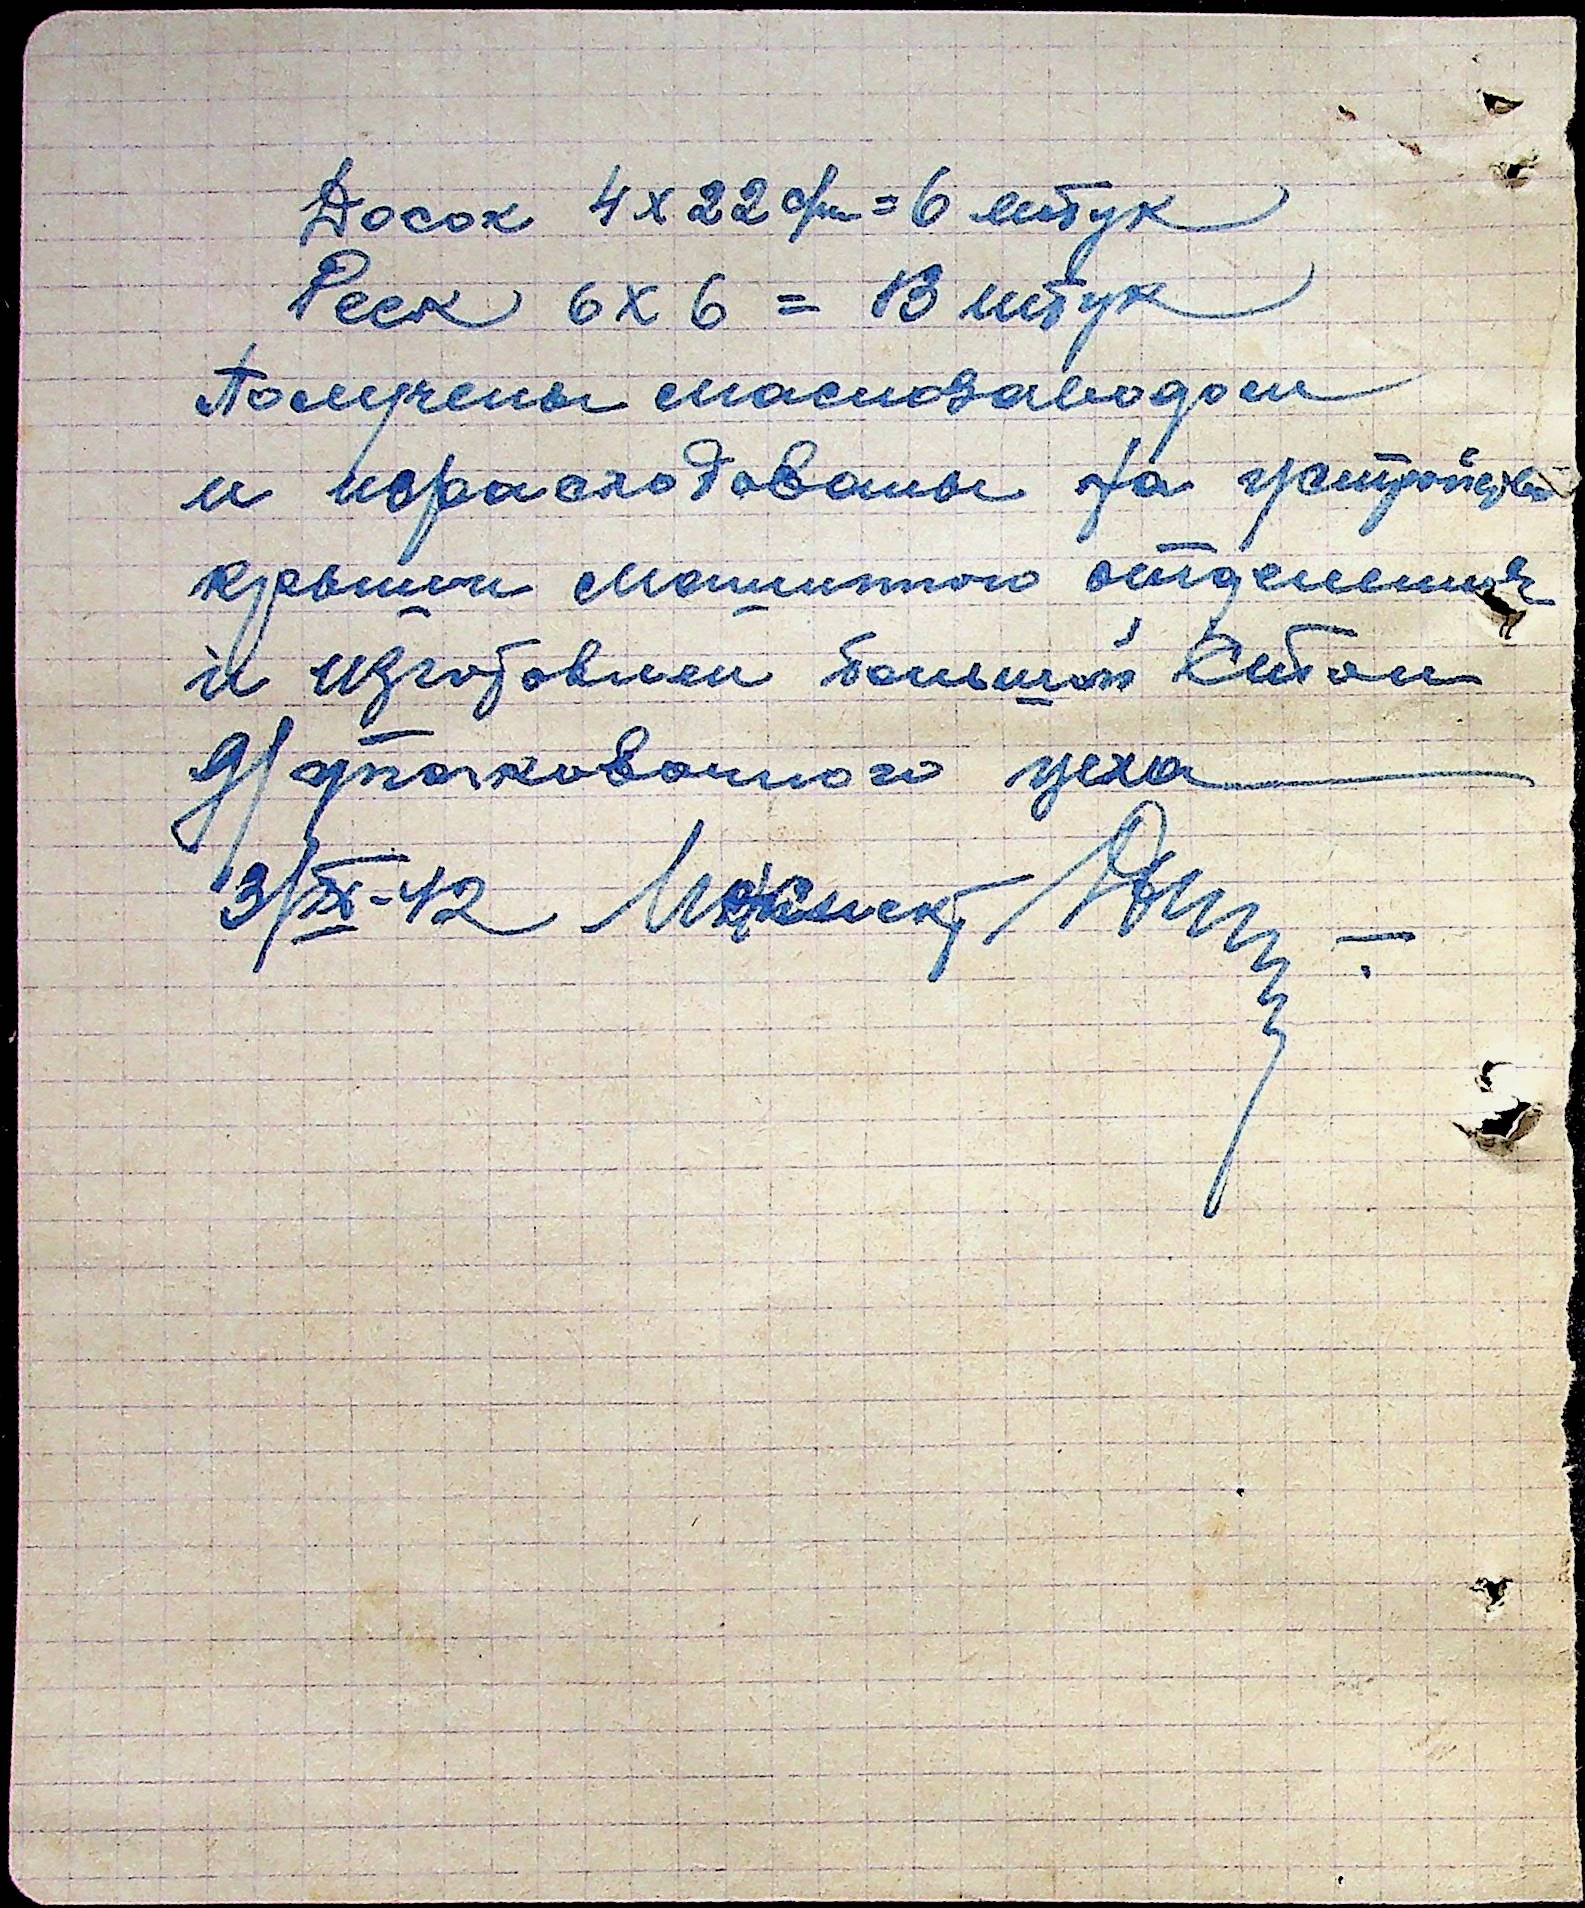 Досок 4 х 22 см = 6 штук
Реек 6 х 6 = 13 штук
Получены маслозаводом
и израсходованы на устройство
крыши машинного отделения
и изготовлен большой стол
д/ упаковочного цеха
3/IX-42